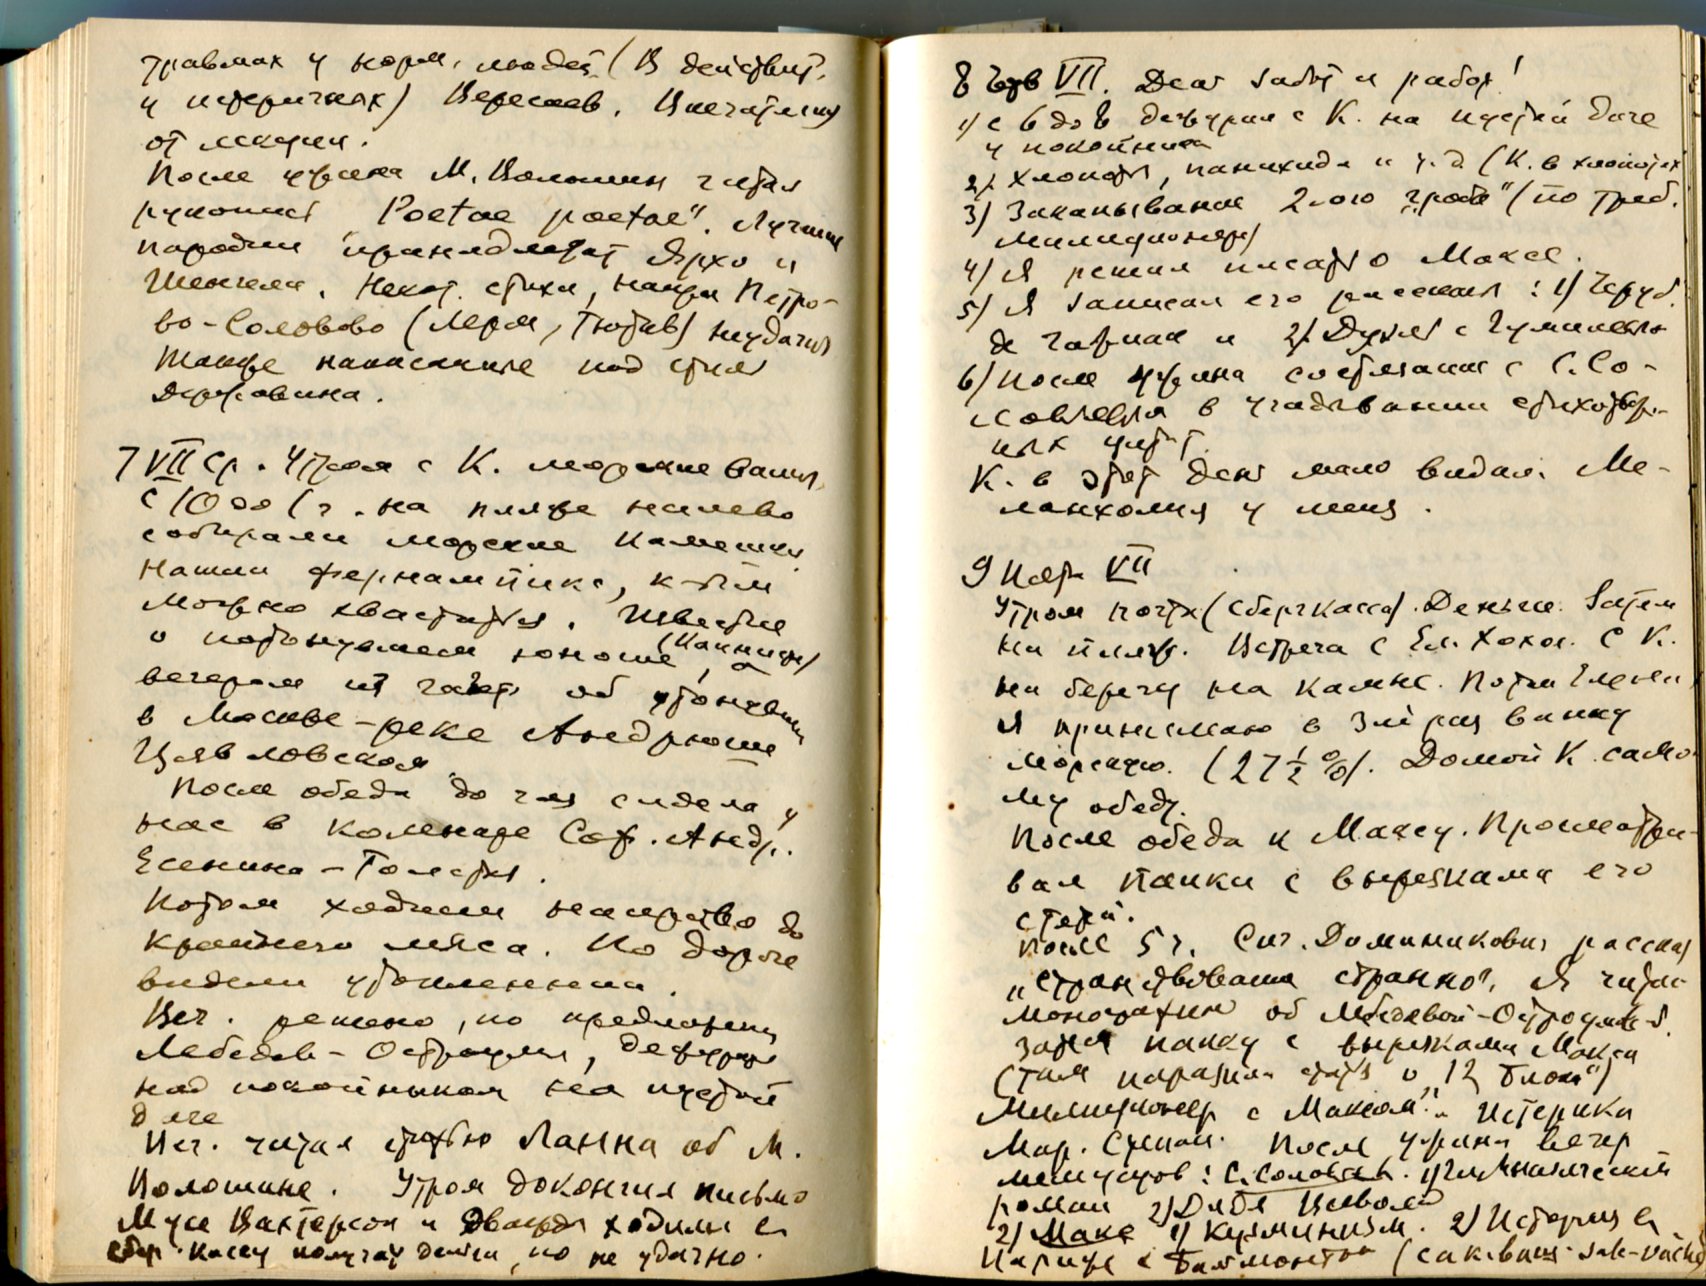 травмах у норм. людей. (В действит.
у истеричках) Вересаев. Впечатления
от лекции.
После ужина М. Волошин читал
рукопись "Poetae poetae". Лучшие
пародии принадлежат Ярхо и
Шенгели. Некот. стихи, напр. Петро-
во-Соловово (Лерм., Тютчев) неудачны
Также написанные под стиль
Державина.
7 VII Ср. Утром с К. морские ванны.
С 10 до 1 ч. на пляже налево
собирали морские камешки.
Нашли фернампикс, к-тым
можно хвастаться. Известие
о потонувшем юноше,
вечером из газет. об утонувшем
в Москве-реке Андрюше
Цявловском.
После обеда до чая сидела у
нас в коменаре Соф. Андр.
Есенина-Толстая.
Потом ходили направо до
крайнего мыса. По дороге
видели утопленника.
Веч. решено, по предложению
Лебедев-Остроумов, дежурить
над покойником на пустой
даче
Веч. читал статью Ланна об М.
Волошине. Утром докончил письмо
Мусе и дважды ходили в
сбер. кассу получать деньги, но не удачно.
8 Четв VII. День забот и работ!
1) с 6 до 8 дежурил с К. на пустой даче
у покойника
2) Хлопоты, панихида и т.д. (К. в хлопотах
3) Закапывание 2-ого "гроба" (по треб.
милиционера)
4) Я решил писать о Максе.
5) Я записал его рассказы: 1) Черуб.
де Габриак и 2) Дуэль с Гумилевым
6) После ужина состязание с С. Со-
ловьевым в угадывании стихотвор-
ных цитат.
К. в этот день мало видал. Ме-
ланхолия у меня.
9 Пят. VII
Утром почта (сберкасса). Деньги. Затем
на пляж. Встреча с Ел. С К.
на берегу на камне. Потом
Я принимаю в 3ий раз ванну
морскую. (27 1/2 %). Домой К само-
му обеду.
После обеда к Максу. Просматри-
вал папки с вырезками его
статей.
После 5 ч. Сиг. Доминикович рассказ
"Странствования странно". Я читал
монографию об Лебедевой-Остроумовой.
Занял папку с вырезками Макса
(там паразит. статья о "12" Блока")
Милиционер с Максом!. Истерика
Мар. Степан. После ужина вечер
мемуаров: С. Соловьев. 1) Гимназический
роман 2) Дядя Всеволод
2) Макс 1) Кузминизм. 2) История в
Париже с Бальмонтом